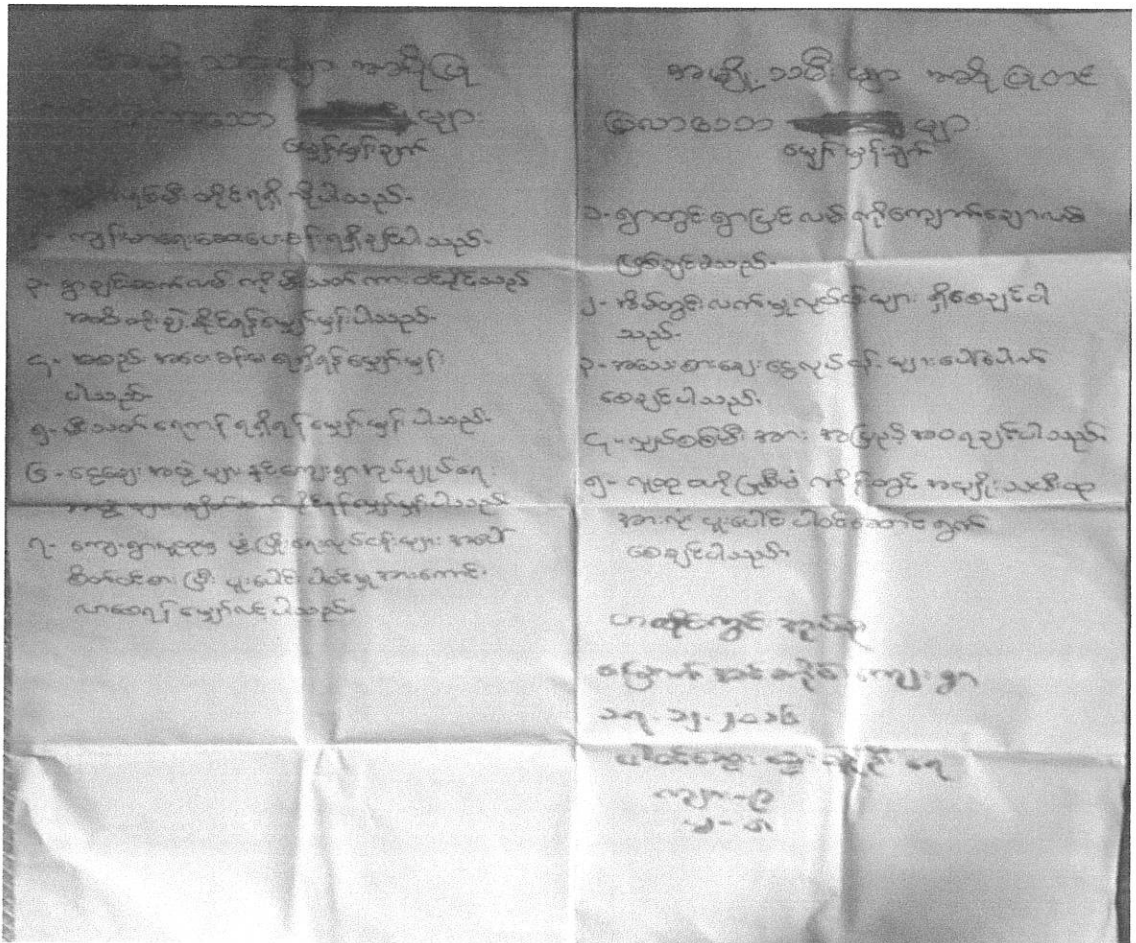 အမျိုးသားများ အဆိုပြု
လာသော များ
မျှော်မှန်းချက်
မီး ရရှိလိုပါသည်-
၂- ကျန်းမာရေးဆေးပေးခန်း ရရှိချင်ပါသည်-
၃- ရွာချင်းဆက်လမ်း ကို မီးသတ်ကား ဝင်နိုင်သည့်
အထိ တိုးချဲ့နိုင်ရန် မျှော်မှန်းပါသည်-
၄- အစည်းအဝေးခန်းမ ရရှိရန် မျှော်မှန်း
ပါသည်-
၅- မီးသတ်ရေကန် ရရှိရန် မျှော်မှန်းပါသည်-
၆- ငွေချေးအဖွဲ့များ နှင့် ကျေးရွာအုပ်ချုပ်ရေး
အဖွဲ့များ မျှော်မှန်းပါသည်
၇- ကျေးရွာလူထုမှ ဖွံ့ဖြိုးရေးလုပ်ငန်းများ အပေါ်
စိတ်ဝင်စားပြီး ပူးပေါင်းပါဝင်မှု အားကောင်း
လာစေရန် မျှော်လင့်ပါသည်-
အမျိုးသမီးများ အဆိုပြုတင်
ပြလာသော များ
မျှော်မှန်းချက်
၁- ရွာတွင်း ရွာပြင်လမ်းကို ကျောက်ချောလမ်း
ဖြစ်ချင်ပါသည်-
၂- အိမ်တွင်းလက်မှုလုပ်ငန်းများ ရှိစေချင်ပါ
သည်-
၃- အသေးစားချေးငွေလုပ်ငန်းများပေါ်ပေါက်
စေချင်ပါသည်-
၄- လျှပ်စစ်မီး အား အပြည့်အဝရချင်ပါသည်
၅- လူထုဗဟိုပြုစီမံကိန်းတွင် အမျိုးသမီးထု
အားလုံး ပူးပေါင်းပါဝင်ဆောင်ရွက်
စေချင်ပါသည်-
အုပ်စု
ကျေးရွာ
၁၇-၁၂-၂၀၁၆
ကျား-၃
မ-၈